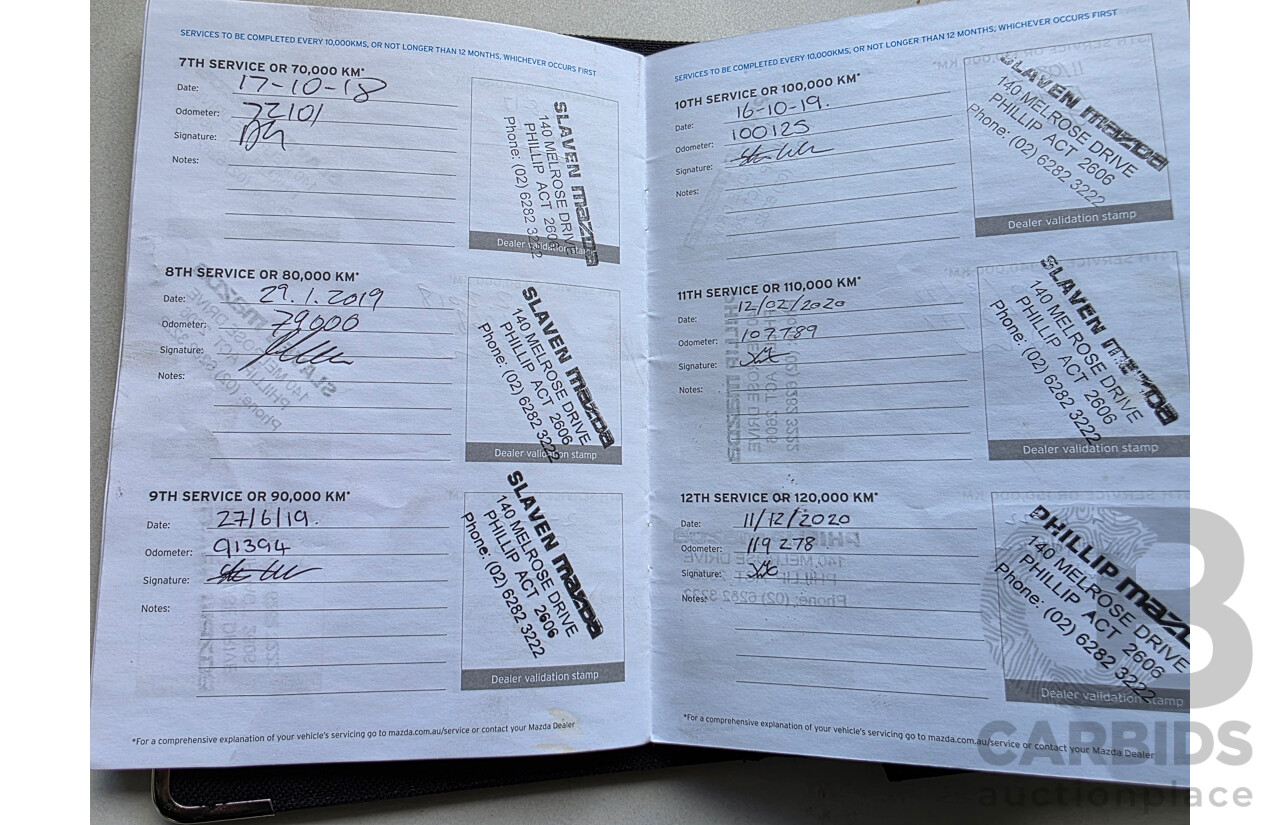 SERVICES TO BE COMPLETED EVERY 10,000KMS, OR NOT LONGER THAN 12 MONTHS, WHICHEVER OCCURS FIRST
7TH SERVICE OR 70,000 KM*
Date: 17-10-18
Odometer: 72101
Signature:
Notes:
SLAVEN mazda
140 MELROSE DRIVE
PHILLIP ACT 2606
Phone: (02) 6282 3222
Dealer validation stamp
8TH SERVICE OR 80,000 KM*
Date: 29.1.2019
Odometer: 79000
Signature:
Notes:
SLAVEN mazda
140 MELROSE DRIVE
PHILLIP ACT 2606
Phone: (02) 6282 3222
Dealer validation stamp
9TH SERVICE OR 90,000 KM*
Date: 27/6/19.
Odometer: 91394
Signature:
Notes:
SLAVEN mazda
140 MELROSE DRIVE
PHILLIP ACT 2606
Phone: (02) 6282 3222
Dealer validation stamp
*For a comprehensive explanation of your vehicle's servicing go to mazda.com.au/service or contact your Mazda Dealer
SERVICES TO BE COMPLETED EVERY 10,000KMS, OR NOT LONGER THAN 12 MONTHS, WHICHEVER OCCURS FIRST
10TH SERVICE OR 100,000 KM*
Date: 16-10-19.
Odometer: 100125
Signature:
Notes:
SLAVEN mazda
140 MELROSE DRIVE
PHILLIP ACT 2606
Phone: (02) 6282 3222
Dealer validation stamp
11TH SERVICE OR 110,000 KM*
Date: 12/02/2020
Odometer: 107789
Signature:
Notes:
SLAVEN mazda
140 MELROSE DRIVE
PHILLIP ACT 2606
Phone: (02) 6282 3222
Dealer validation stamp
12TH SERVICE OR 120,000 KM*
Date: 11/12/2020
Odometer: 119278
Signature:
Notes:
PHILLIP mazd
140 MELROSE DRIVE
PHILLIP ACT 2606
Phone: (02) 6282 3222
Dealer validation stamp
*For a comprehensive explanation of your vehicle's servicing go to mazda.com.au/service or contact your Mazda Dealer
CARBIDS
auctionplace